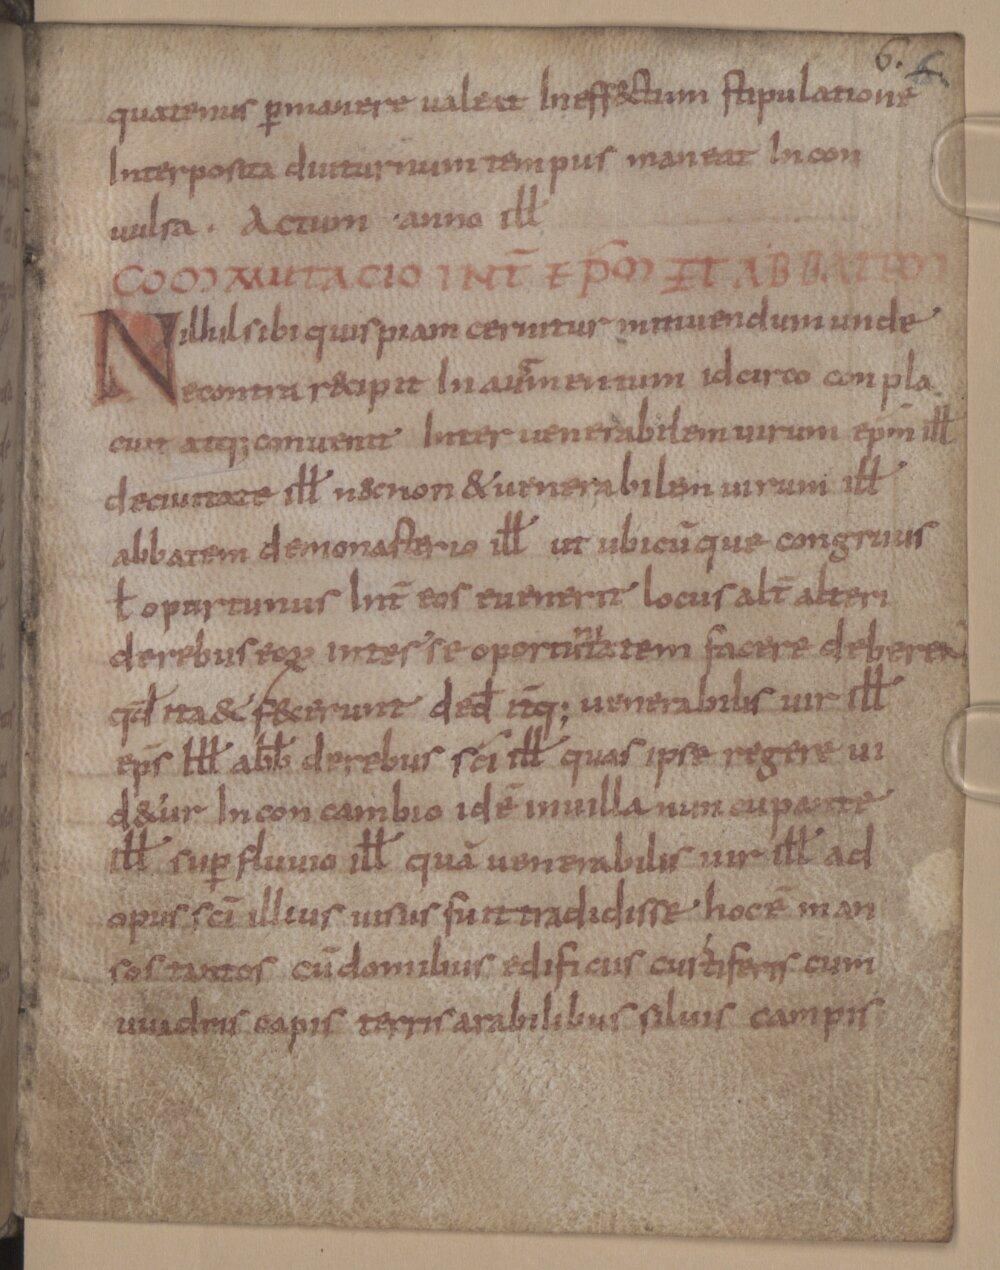 6. 6.
quatenus p̄manere ualeat In effectum stipulatione
Interposita diuturnum tempus maneat Incon
uulsa . Actum anno ill̄
COMMUTACIO INT̄ EP̄M ET ABBATEM
Nillul sibi quispiam cernitur minuendum unde
econtra recipit In aumentum idcirco con pla
cuit atq; conuenit Inter uenerabilem uirum ep̄m ill̄
deciuitate ill̄ n&cnon & uenerabilem uirum ill̄
abbatem demonasterio ill̄ ut ubicū que congruus
ł oportunus Int̄ eos euenerit locus alt̄ alteri
derebus eoꝝ inter se oportunitatem facere deberen
qđ ita & f&cerunt deđ it̄q; uenerabilis uir ill̄
ep̄s ill̄ abb̄ derebus sc̄i ill̄ quas ipse regere ui
d&ur In con cambio idē inuilla nuncupante
ill̄ sup̄ fluuio ill̄ quā uenerabilis uir ill̄ ad
opus sc̄i illius uisus fuit tradidisse hoc ē man
sos tantos cū domibus edificus curtiferis cum
uuidris capis terris arabilibus siluis campis